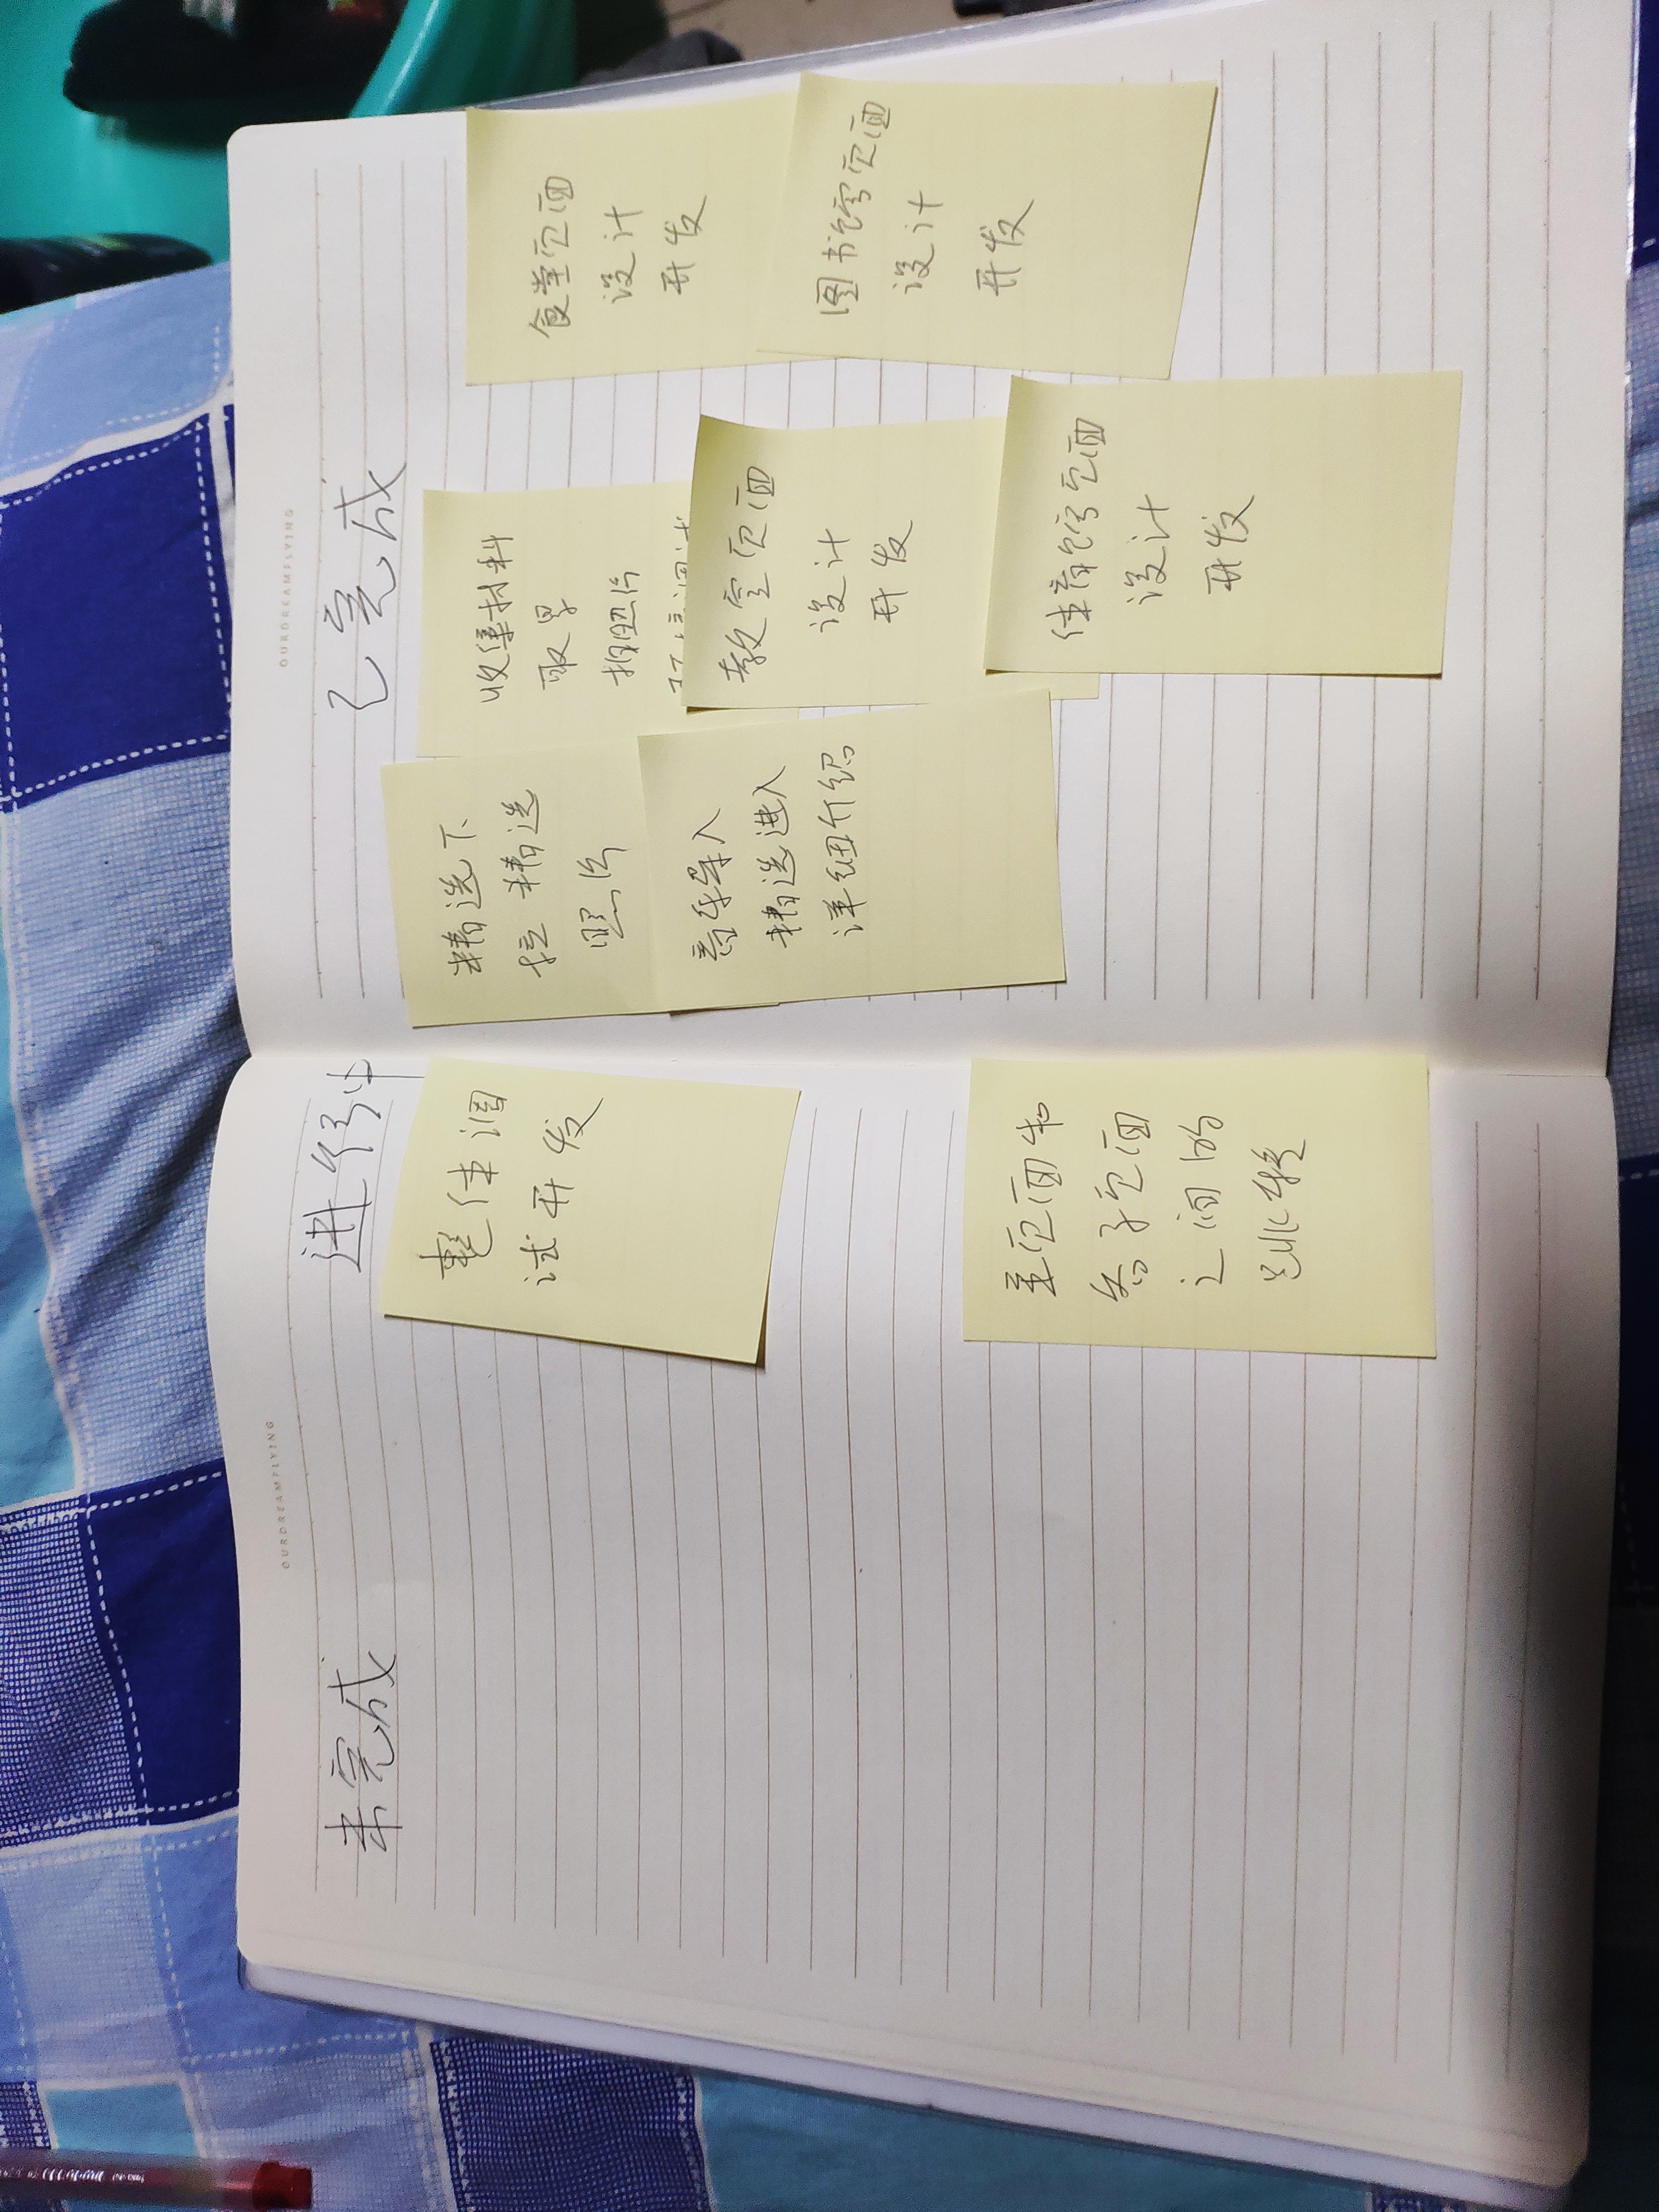 OURDREAMFLYING
OURDREAMFLYING
未完成
进行中
已完成
整体调
试开发
主页面和
各子页面
之间的
跳转
精选下
拉精选
照片
首页导入
精选进入
详细介绍
收集材料
取景
拍照片
教室页面
设计
开发
体育馆页面
设计
开发
食堂页面
设计
开发
图书馆页面
设计
开发